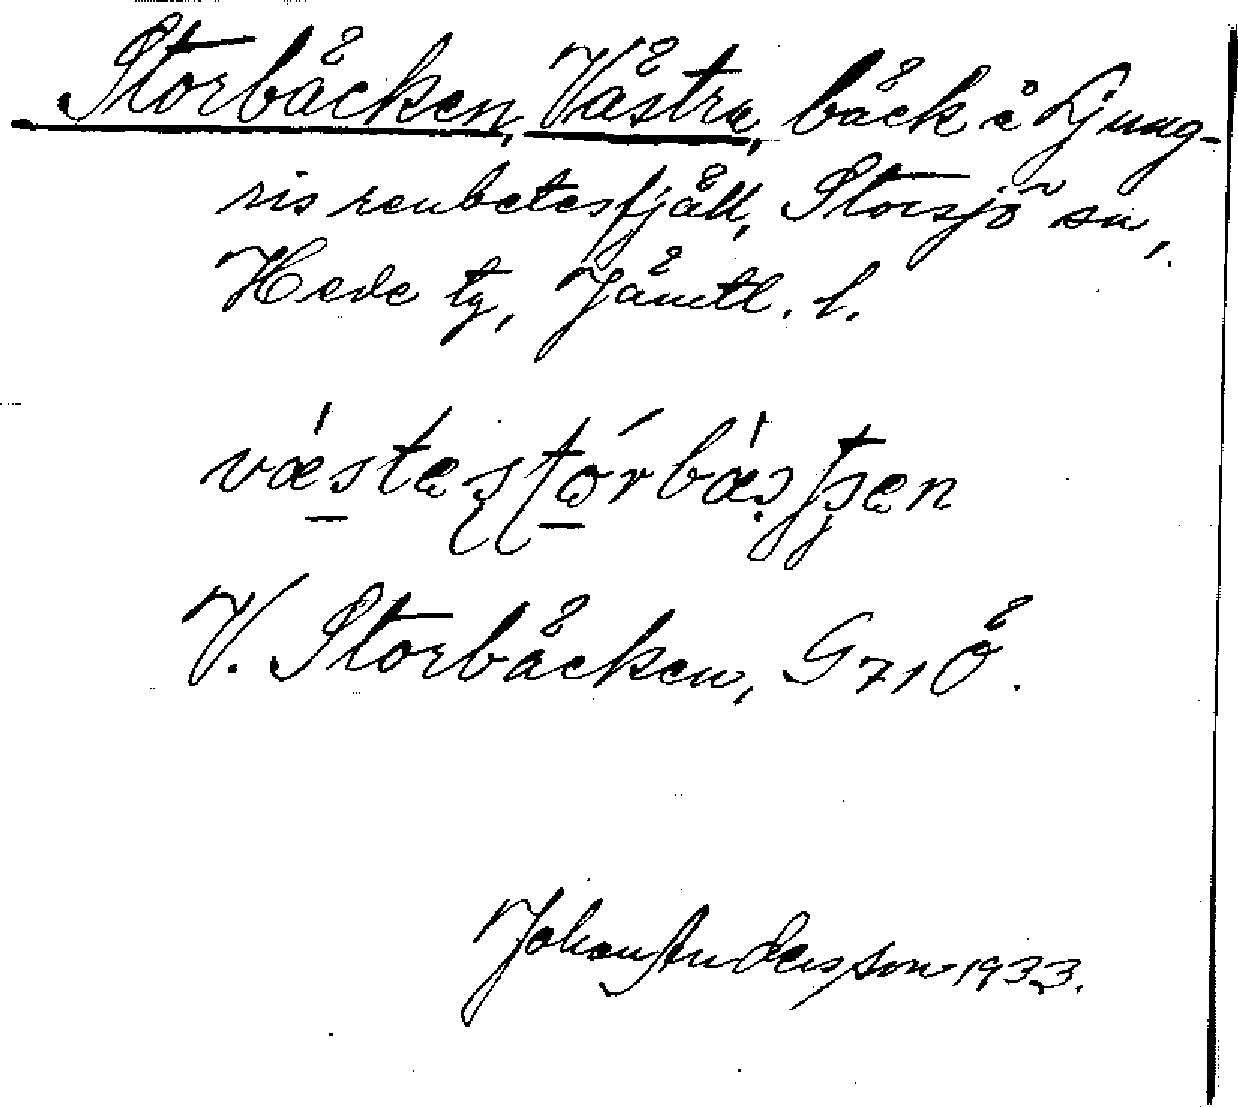 Storbäcken, Västra, bäck i Ljung-
ris renbetesfjäll, Storsjö sn,
Hede tg, Jämtl. l.
V. Storbäcken, G 71 Ö.
Johan Andersson 1933.